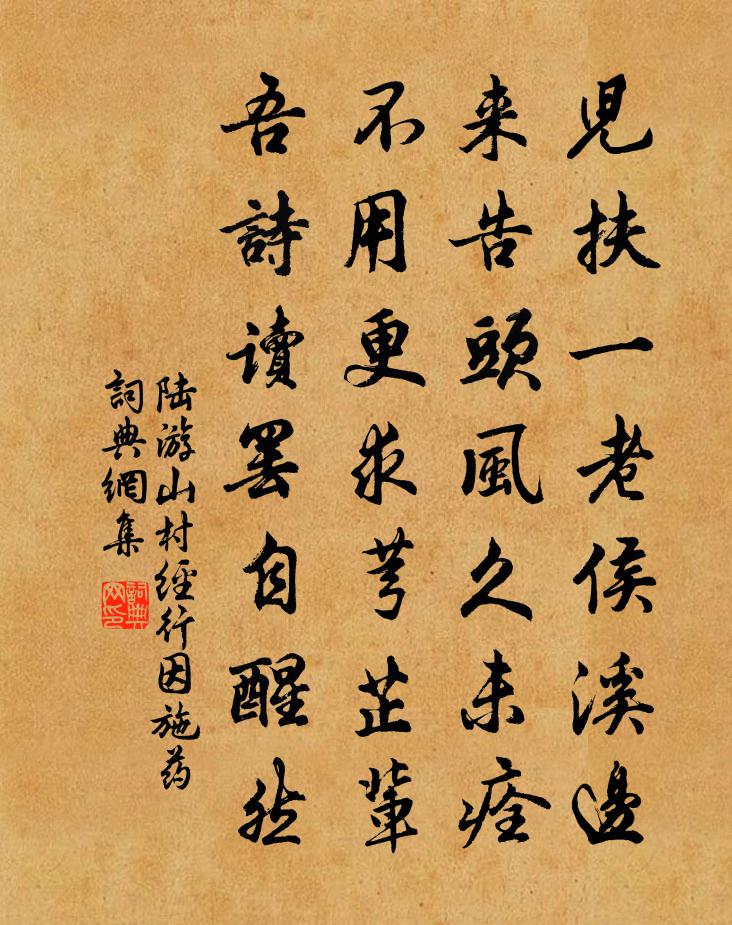 兒扶一老侯溪邊
来告頭風久未痊
不用更求芎芷輩
吾詩讀罷自醒然
陆游山村經行因施药
詞典網集
詞典网印